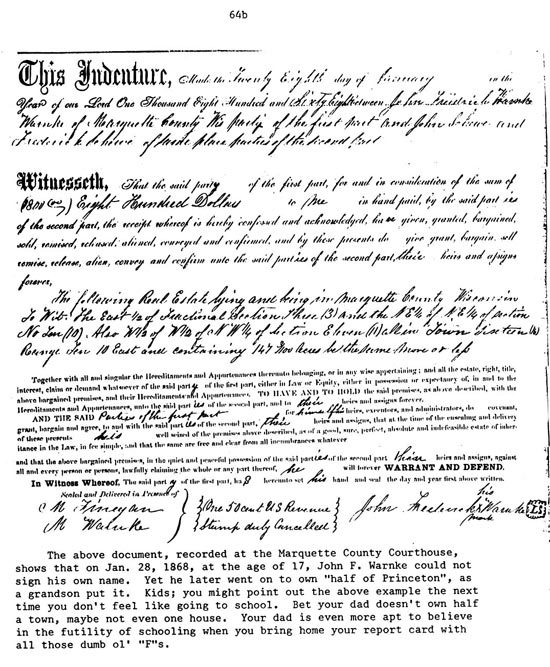 64b
This Indenture, Made the Twenty Eighth day of January in the
Year of our Lord One Thousand Eight Hundred and Sixty Eight between John Friedrich Warnke
Warnke of Marquette County Wis party of the first part and John and
Frederick of same place parties of the second part
Witnesseth, That the said party of the first part, for and in consideration of the sum of
Eight Hundred Dollars to me in hand paid, by the said part ies
of the second part, the receipt whereof is hereby confessed and acknowledged, has given, granted, bargained,
sold, remised, released, aliened, conveyed and confirmed, and by these presents do give grant, bargain, sell
remise, release, alien, convey and confirm unto the said parties of the second part, their heirs and assigns
forever,
The following Real Estate lying and being in Marquette County Wisconsin
To Wit: The East 1/2 of Fractional Section Three (3) and the N.E 1/4 of N.E 1/4 of Section
No Ten (10) Also W 1/2 of W 1/2 of N W 1/4 of Section Eleven (11) all in Town
Range Ten 10 East and containing 147 Acres be the same more or less
Together with all and singular the Hereditaments and Appurtenances thereunto belonging, or in any wise appertaining; and all the estate, right, title,
interest, claim or demand whatsoever of the said party of the first part, either in Law or Equity, either in possession or expectancy of, in and to the
above bargained premises, and their Hereditaments and Appurtenances. TO HAVE AND TO HOLD the said premises, as above described, with the
Hereditaments and Appurtenances, unto the said part ies of the second part, and to their heirs and assigns forever.
AND THE SAID Parties of the first part for himself his heirs, executors, and administrators, do covenant,
grant, bargain and agree, to and with the said part ies of the second part, their heirs and assigns, that at the time of the ensealing and delivery
of these presents he is well seized of the premises above described, as of a good, sure, perfect, absolute and indefeasible estate of inher-
itance in the Law, in fee simple, and that the same are free and clear from all incumbrances whatever
and that the above bargained premises, in the quiet and peaceful possession of the said parties of the second part their heirs and assigns, against
all and every person or persons, lawfully claiming the whole or any part thereof, he will forever WARRANT AND DEFEND.
In Witness Whereof, The said party of the first part, has hereunto set his hand and seal the day and year first above written.
Sealed and Delivered in Presence of
M Finegan
M Warnke
One 50 cent U.S Revenue
Stamp duly Cancelled
John Frederick Warnke
his
mark
L S
The above document, recorded at the Marquette County Courthouse,
shows that on Jan. 28, 1868, at the age of 17, John F. Warnke could not
sign his own name. Yet he later went on to own "half of Princeton", as
a grandson put it. Kids; you might point out the above example the next
time you don't feel like going to school. Bet your dad doesn't own half
a town, maybe not even one house. Your dad is even more apt to believe
in the futility of schooling when you bring home your report card with
all those dumb ol' "F"s.